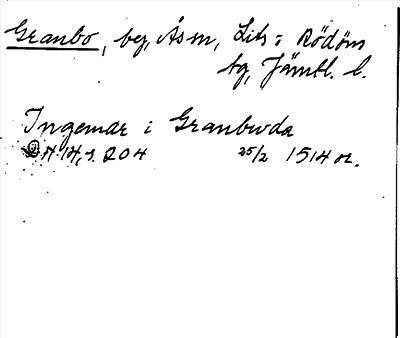 Granbo, by, Ås sn, Lits o Rödöns
tg, Jämtl. l.
Ingemar i Granbuda
DN 14, s. 204 25/2 1514 or.